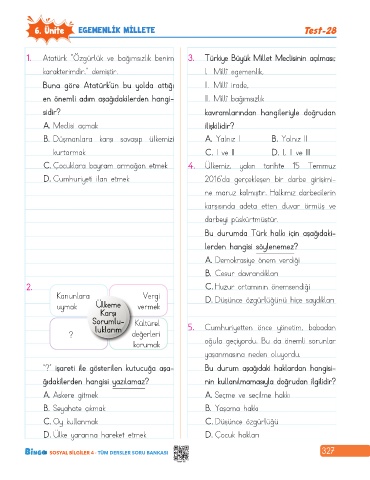 6. Ünite EGEMENLİK MİLLETE
Test-28
1. Atatürk "Özgürlük ve bağımsızlık benim
karakterimdir." demiştir.
Buna göre Atatürk'ün bu yolda attığı
en önemli adım aşağıdakilerden hangi-
sidir?
A. Meclisi açmak
B. Düşmanlara karşı savaşıp ülkemizi
kurtarmak
C. Çocuklara bayram armağan etmek
D. Cumhuriyeti ilan etmek
2.
Kanunlara
uymak
Vergi
vermek
Ülkeme
Karşı
Sorumlu-
luklarım
?
Kültürel
değerleri
korumak
"?" işareti ile gösterilen kutucuğa aşa-
ğıdakilerden hangisi yazılamaz?
A. Askere gitmek
B. Seyahate çıkmak
C. Oy kullanmak
D. Ülke yararına hareket etmek
3. Türkiye Büyük Millet Meclisinin açılması;
I. Millî egemenlik,
II. Millî irade,
III. Millî bağımsızlık
kavramlarından hangileriyle doğrudan
ilişkilidir?
A. Yalnız I B. Yalnız II
C. I ve II D. I, II ve III
4. Ülkemiz, yakın tarihte 15 Temmuz
2016'da gerçekleşen bir darbe girişimi-
ne maruz kalmıştır. Halkımız darbecilerin
karşısında adeta etten duvar örmüş ve
darbeyi püskürtmüştür.
Bu durumda Türk halkı için aşağıdaki-
lerden hangisi söylenemez?
A. Demokrasiye önem verdiği
B. Cesur davrandıkları
C. Huzur ortamının önemsendiği
D. Düşünce özgürlüğünü hiçe saydıkları
5. Cumhuriyetten önce yönetim, babadan
oğula geçiyordu. Bu da önemli sorunlar
yaşanmasına neden oluyordu.
Bu durum aşağıdaki haklardan hangisi-
nin kullanılmamasıyla doğrudan ilgilidir?
A. Seçme ve seçilme hakkı
B. Yaşama hakkı
C. Düşünce özgürlüğü
D. Çocuk hakları
BinGO SOSYAL BİLGİLER 4 - TÜM DERSLER SORU BANKASI
327